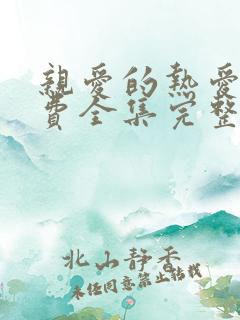 親愛的熱愛
費全集完整
北山靜香
未任同意禁止轉載